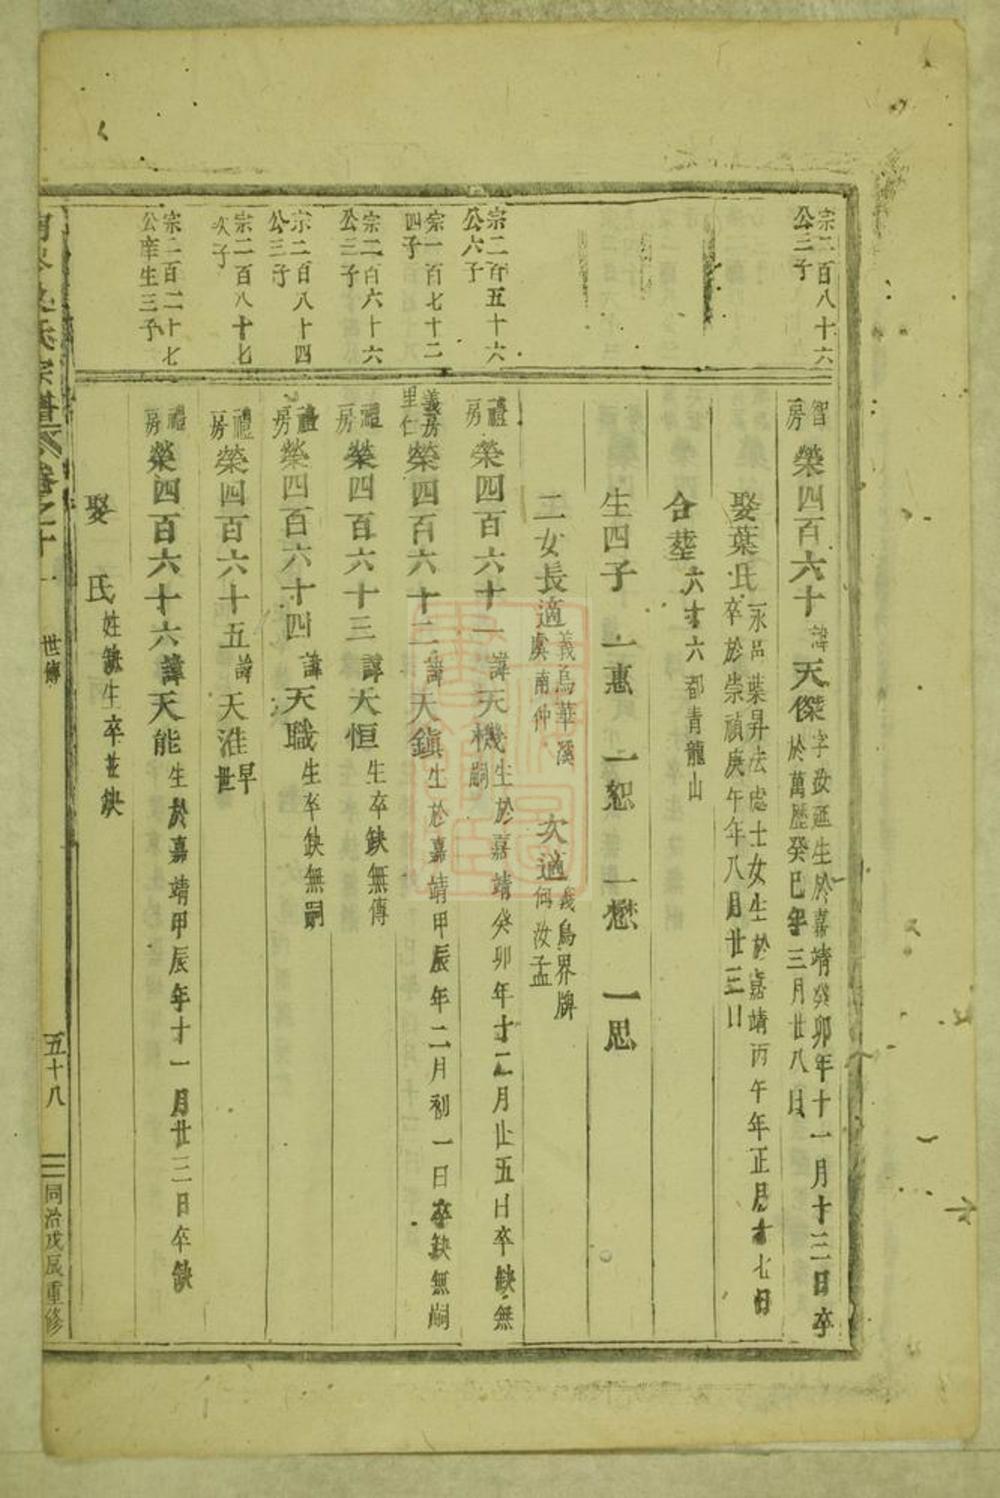 宗二百八十六
公三子
智房
榮四百六十諱天傑字汝 生於嘉靖癸卯年十一月十三日卒
於萬歷癸巳年三月廿八日
娶葉氏永呂葉昇法處士女生於嘉靖丙午年正月十七日
卒於崇禎庚午年八月廿三日
合塟六十六都青龍山
生四子 一惠 一恕 一懋 一思
二女長適義烏華溪虞南仲 次適義烏界牌何汝孟
宗二百五十六
公六子
禮房
榮四百六十一諱天機生於嘉靖癸卯年十二月廿五日卒缺無
嗣
宗一百七十二
四子
義房
里仁
榮四百六十二諱天鎮生於嘉靖甲辰年二月初一日卒缺無嗣
宗二百六十六
公三子
禮房
榮四百六十三諱天恒生卒缺無傳
宗二百八十四
公三子
禮房
榮四百六十四諱天職生卒缺無嗣
宗二百八十七
次子
禮房
榮四百六十五諱天淮早世
宗二百二十七
公幸生三子
禮房
榮四百六十六諱天能生於嘉靖甲辰年十一月廿三日卒缺
娶 氏姓缺生卒缺
氏宗譜 卷之十一 世傳 五十八 同治戊辰重修